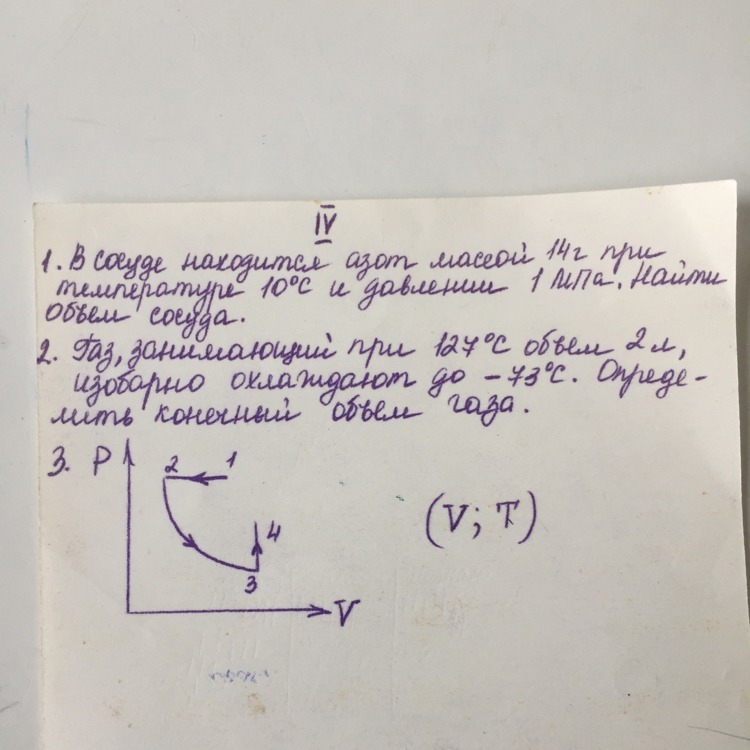 IV
1. В сосуде находится азот массой 14г при
температуре 10°С и давлении 1 МПа. Найти
объем сосуда.
2. Газ, занимающий при 127°С объем 2 л,
изобарно охлаждают до -73°С. Опреде-
лить конечный объем газа.
3. P 2 1
4
3
V
(V; T)